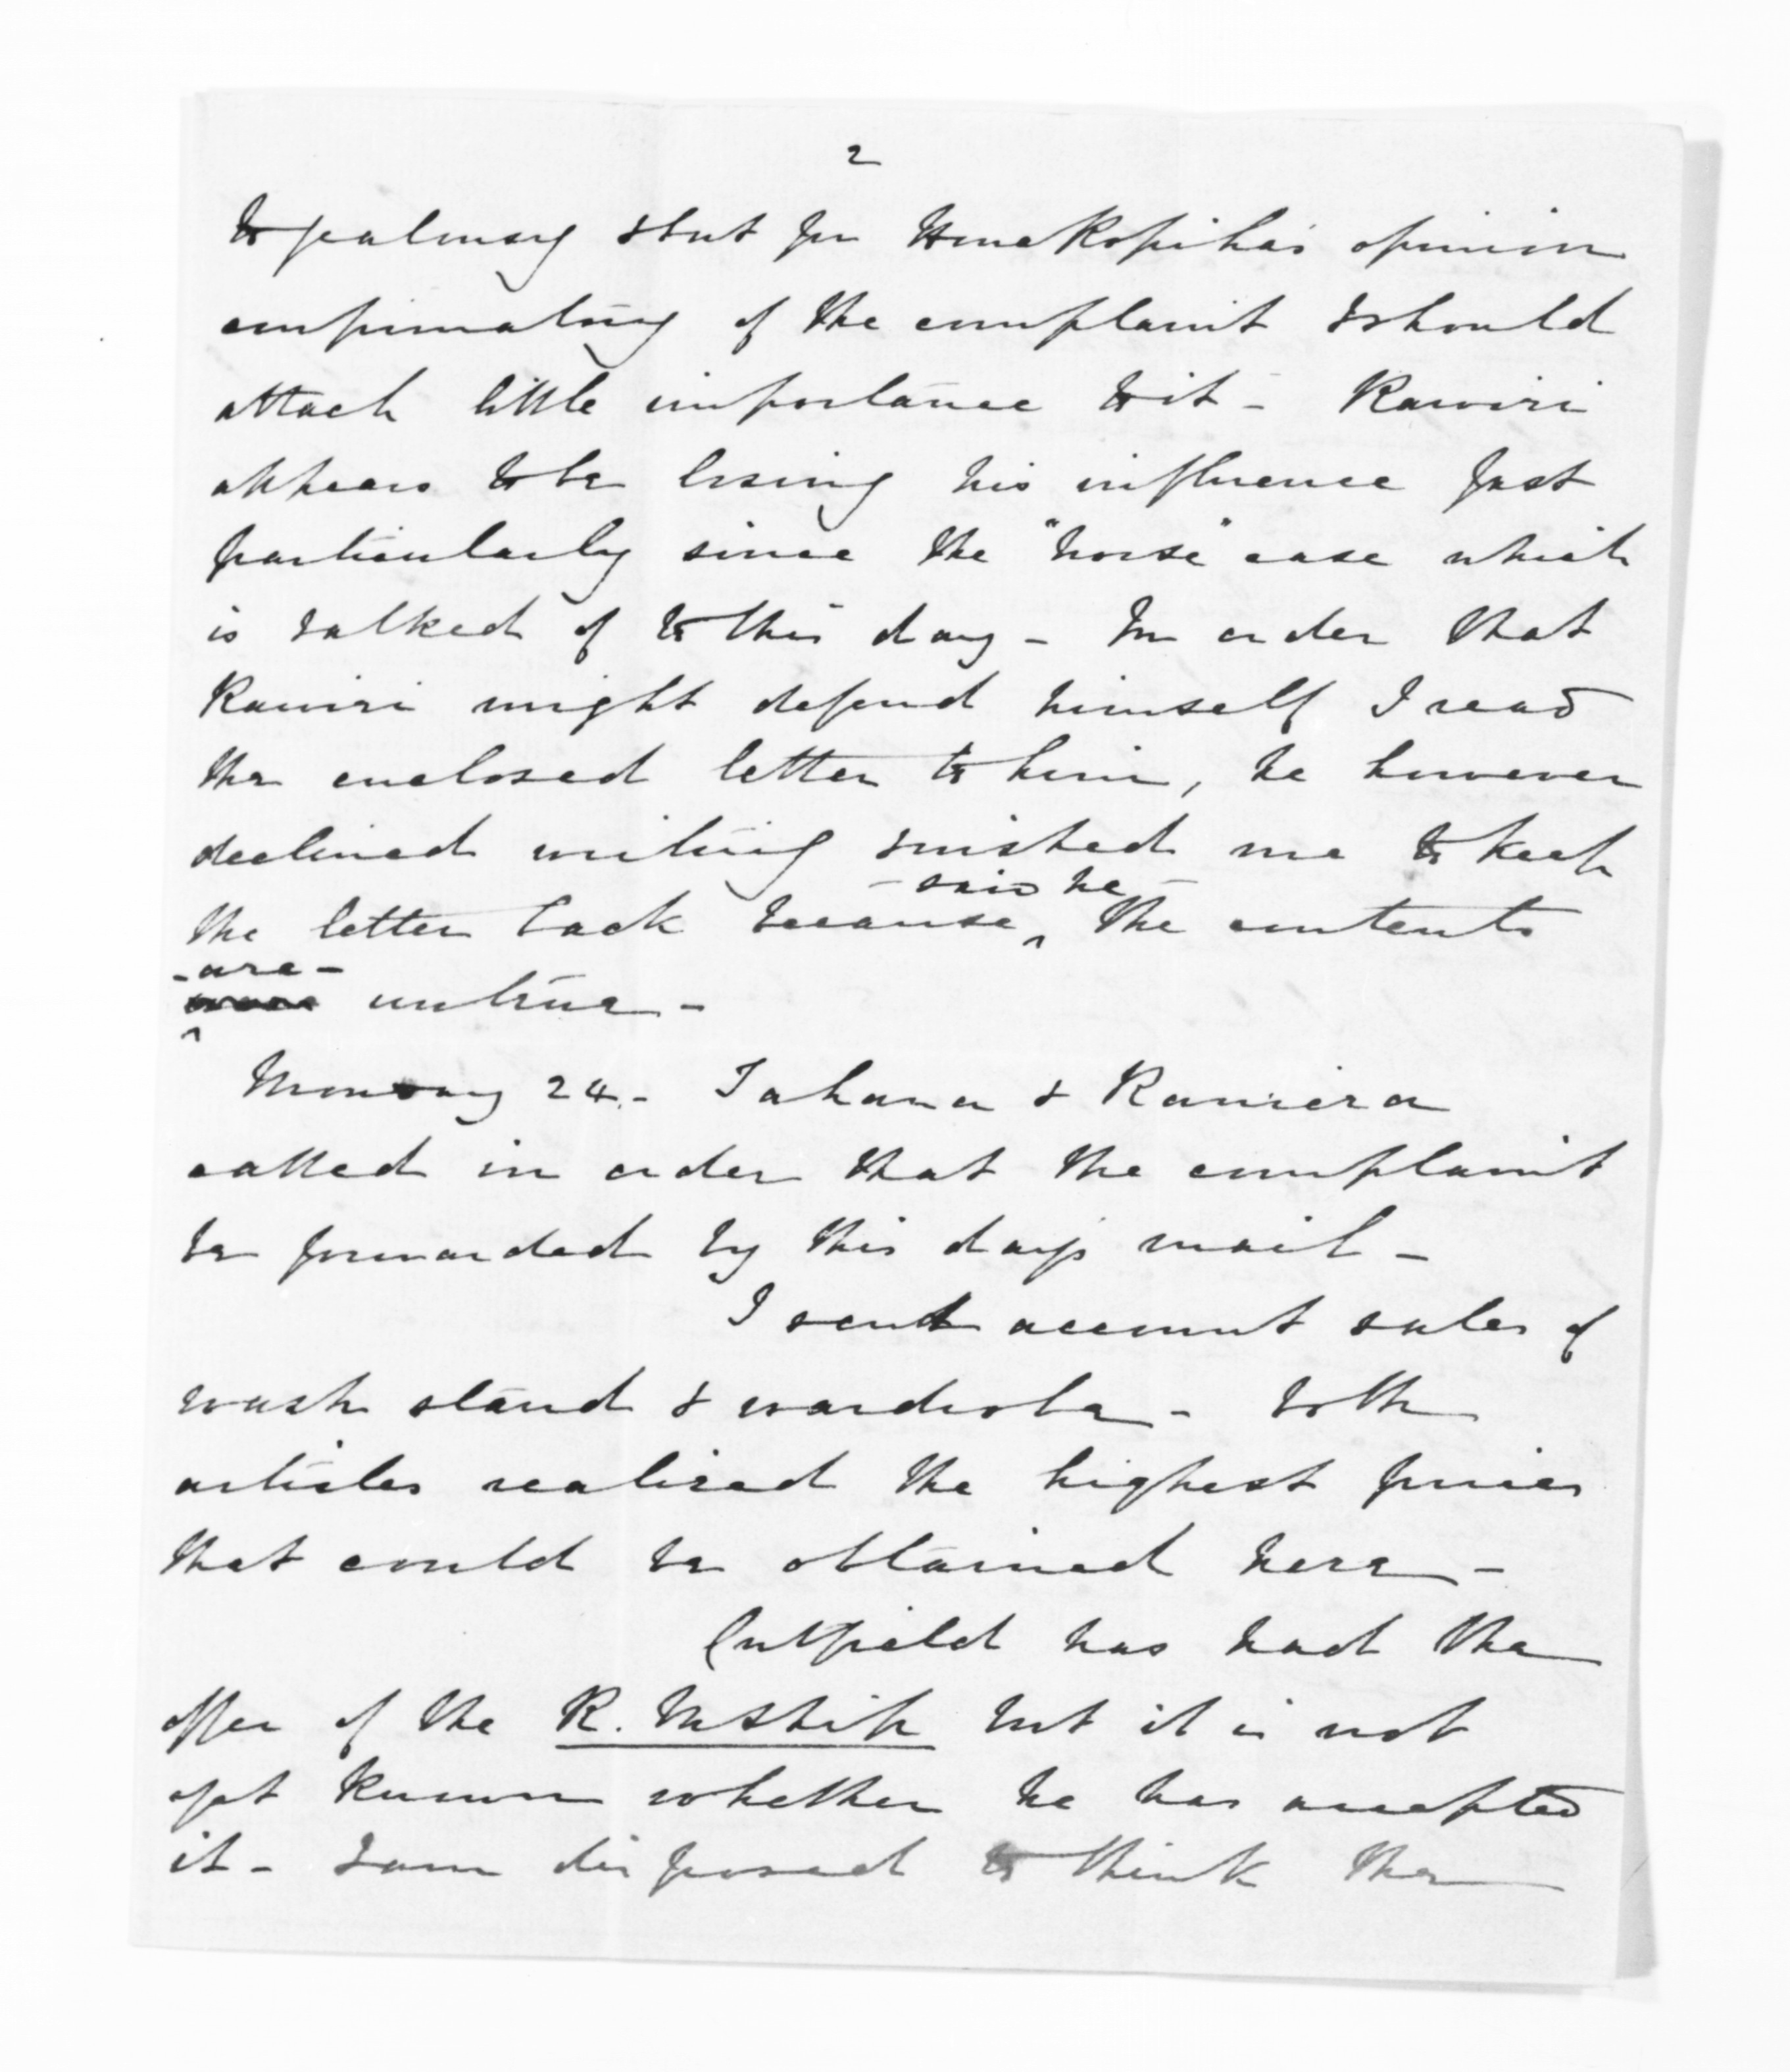 2
to jealousy & but for Honekopiha's opinion
confirmatory of the complaint I should
attach little importance to it - Rawiri
appears to be losing his influence fast
particularly since the "horse" case which
is talked of to this day - In order that
Rawiri might defend himself I read
the enclosed letter to him, he however
declined writing & wished me to keep
- said he -
the letter back because ^ the contents
- are -
untrue -
Monday 24 - Tahana & Raniera
called in order that the complaint
be forwarded by this day's mail -
I send account sales of
wash stand & wardrobe - both
articles realised the highest prices
that could be obtained here -
Cutfield has had the
offer of the R. Mstship but it is not
yet known whether he has accepted
it - I am disposed to think the